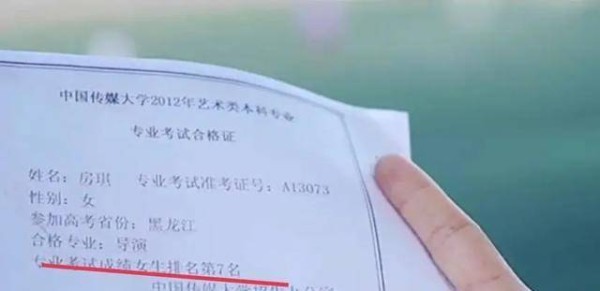 中国传媒大学2012年艺术类本科专业
专业考试合格证
姓名：房琪 专业考试准考证号：A13073
性别：女
参加高考省份：黑龙江
合格专业：导演
专业考试成绩女生排名第7名
中国传媒大学招生办公室